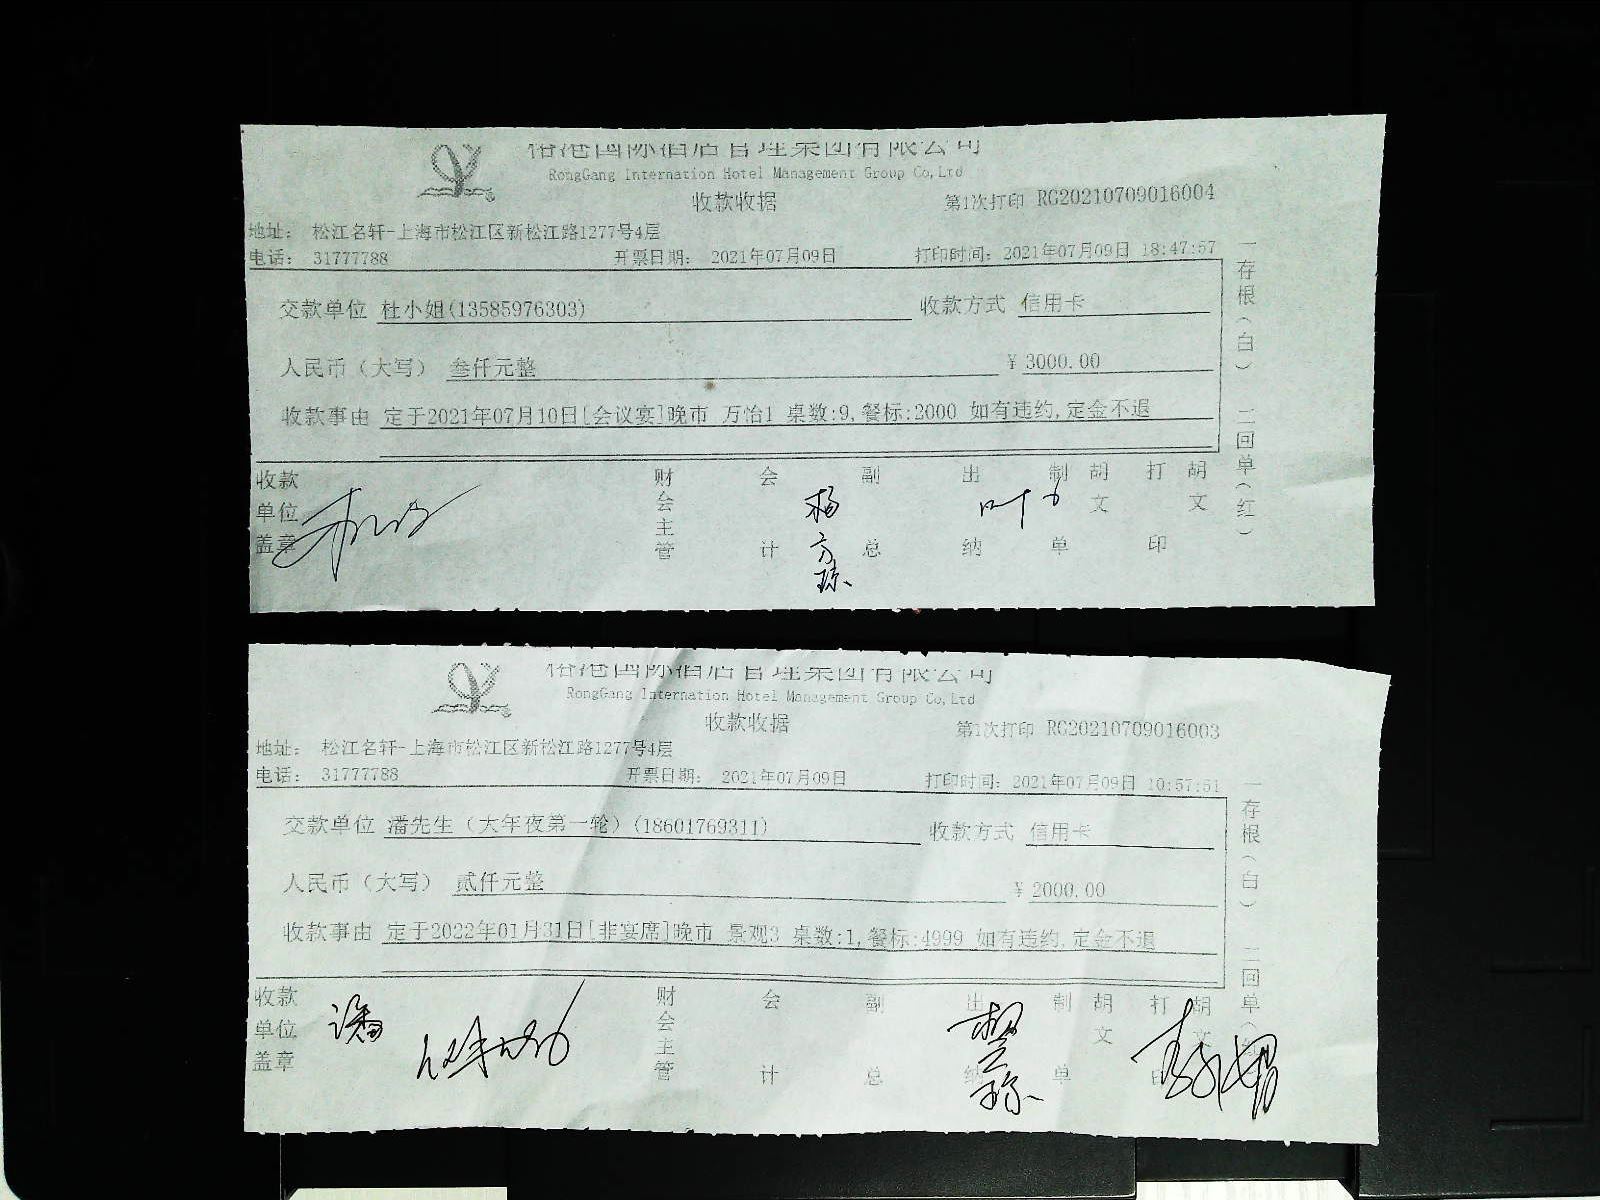 榕港国际酒店管理集团有限公司
RongGang Internation Hotel Management Group Co,Ltd
收款收据
第1次打印 RG20210709016004
地址: 松江名轩-上海市松江区新松江路1277号4层
电话: 31777788 开票日期: 2021年07月09日 打印时间: 2021年07月09日 18:47:57
交款单位 杜小姐(13585976303) 收款方式 信用卡
人民币（大写） 叁仟元整 ¥ 3000.00
收款事由 定于2021年07月10日[会议宴]晚市 万怡1 桌数:9,餐标:2000 如有违约,定金不退
收款单位盖章 财会主管 会计 杨 副总 出纳 叶 制单 胡文 打印 胡文
一存根(白) 二回单(红)
榕港国际酒店管理集团有限公司
RongGang Internation Hotel Management Group Co,Ltd
收款收据
第1次打印 RG20210709016003
地址: 松江名轩-上海市松江区新松江路1277号4层
电话: 31777788 开票日期: 2021年07月09日 打印时间: 2021年07月09日 10:57:51
交款单位 潘先生（大年夜第一轮）(18601769311) 收款方式 信用卡
人民币（大写） 贰仟元整 ¥ 2000.00
收款事由 定于2022年01月31日[非宴席]晚市 景观3 桌数:1,餐标:4999 如有违约,定金不退
收款单位盖章 潘 财会主管 会计 副总 出纳 制单 胡文 打印 胡文
一存根(白) 二回单